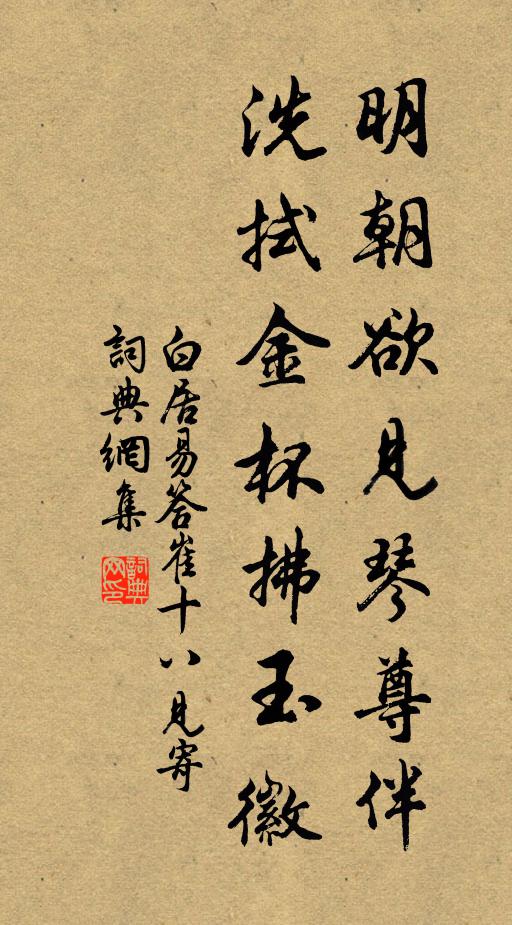 明朝欲見琴尊伴
洗拭金杯拂玉徽
白居易答崔十八見寄
詞典網集
詞典网印